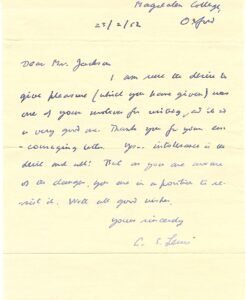 Magdalen College,
Oxford
23/2/52
Dear Mr. Jackson
I am sure the desire to
give pleasure (which you have given) was
one of your motives for writing, and it is
a very good one. Thank you for your en-
couraging letter. Your intolerance is the
devil and all! But as you are aware
of the danger, you are in a position to re-
sist it. With all good wishes.
yours sincerely
C. S. Lewis